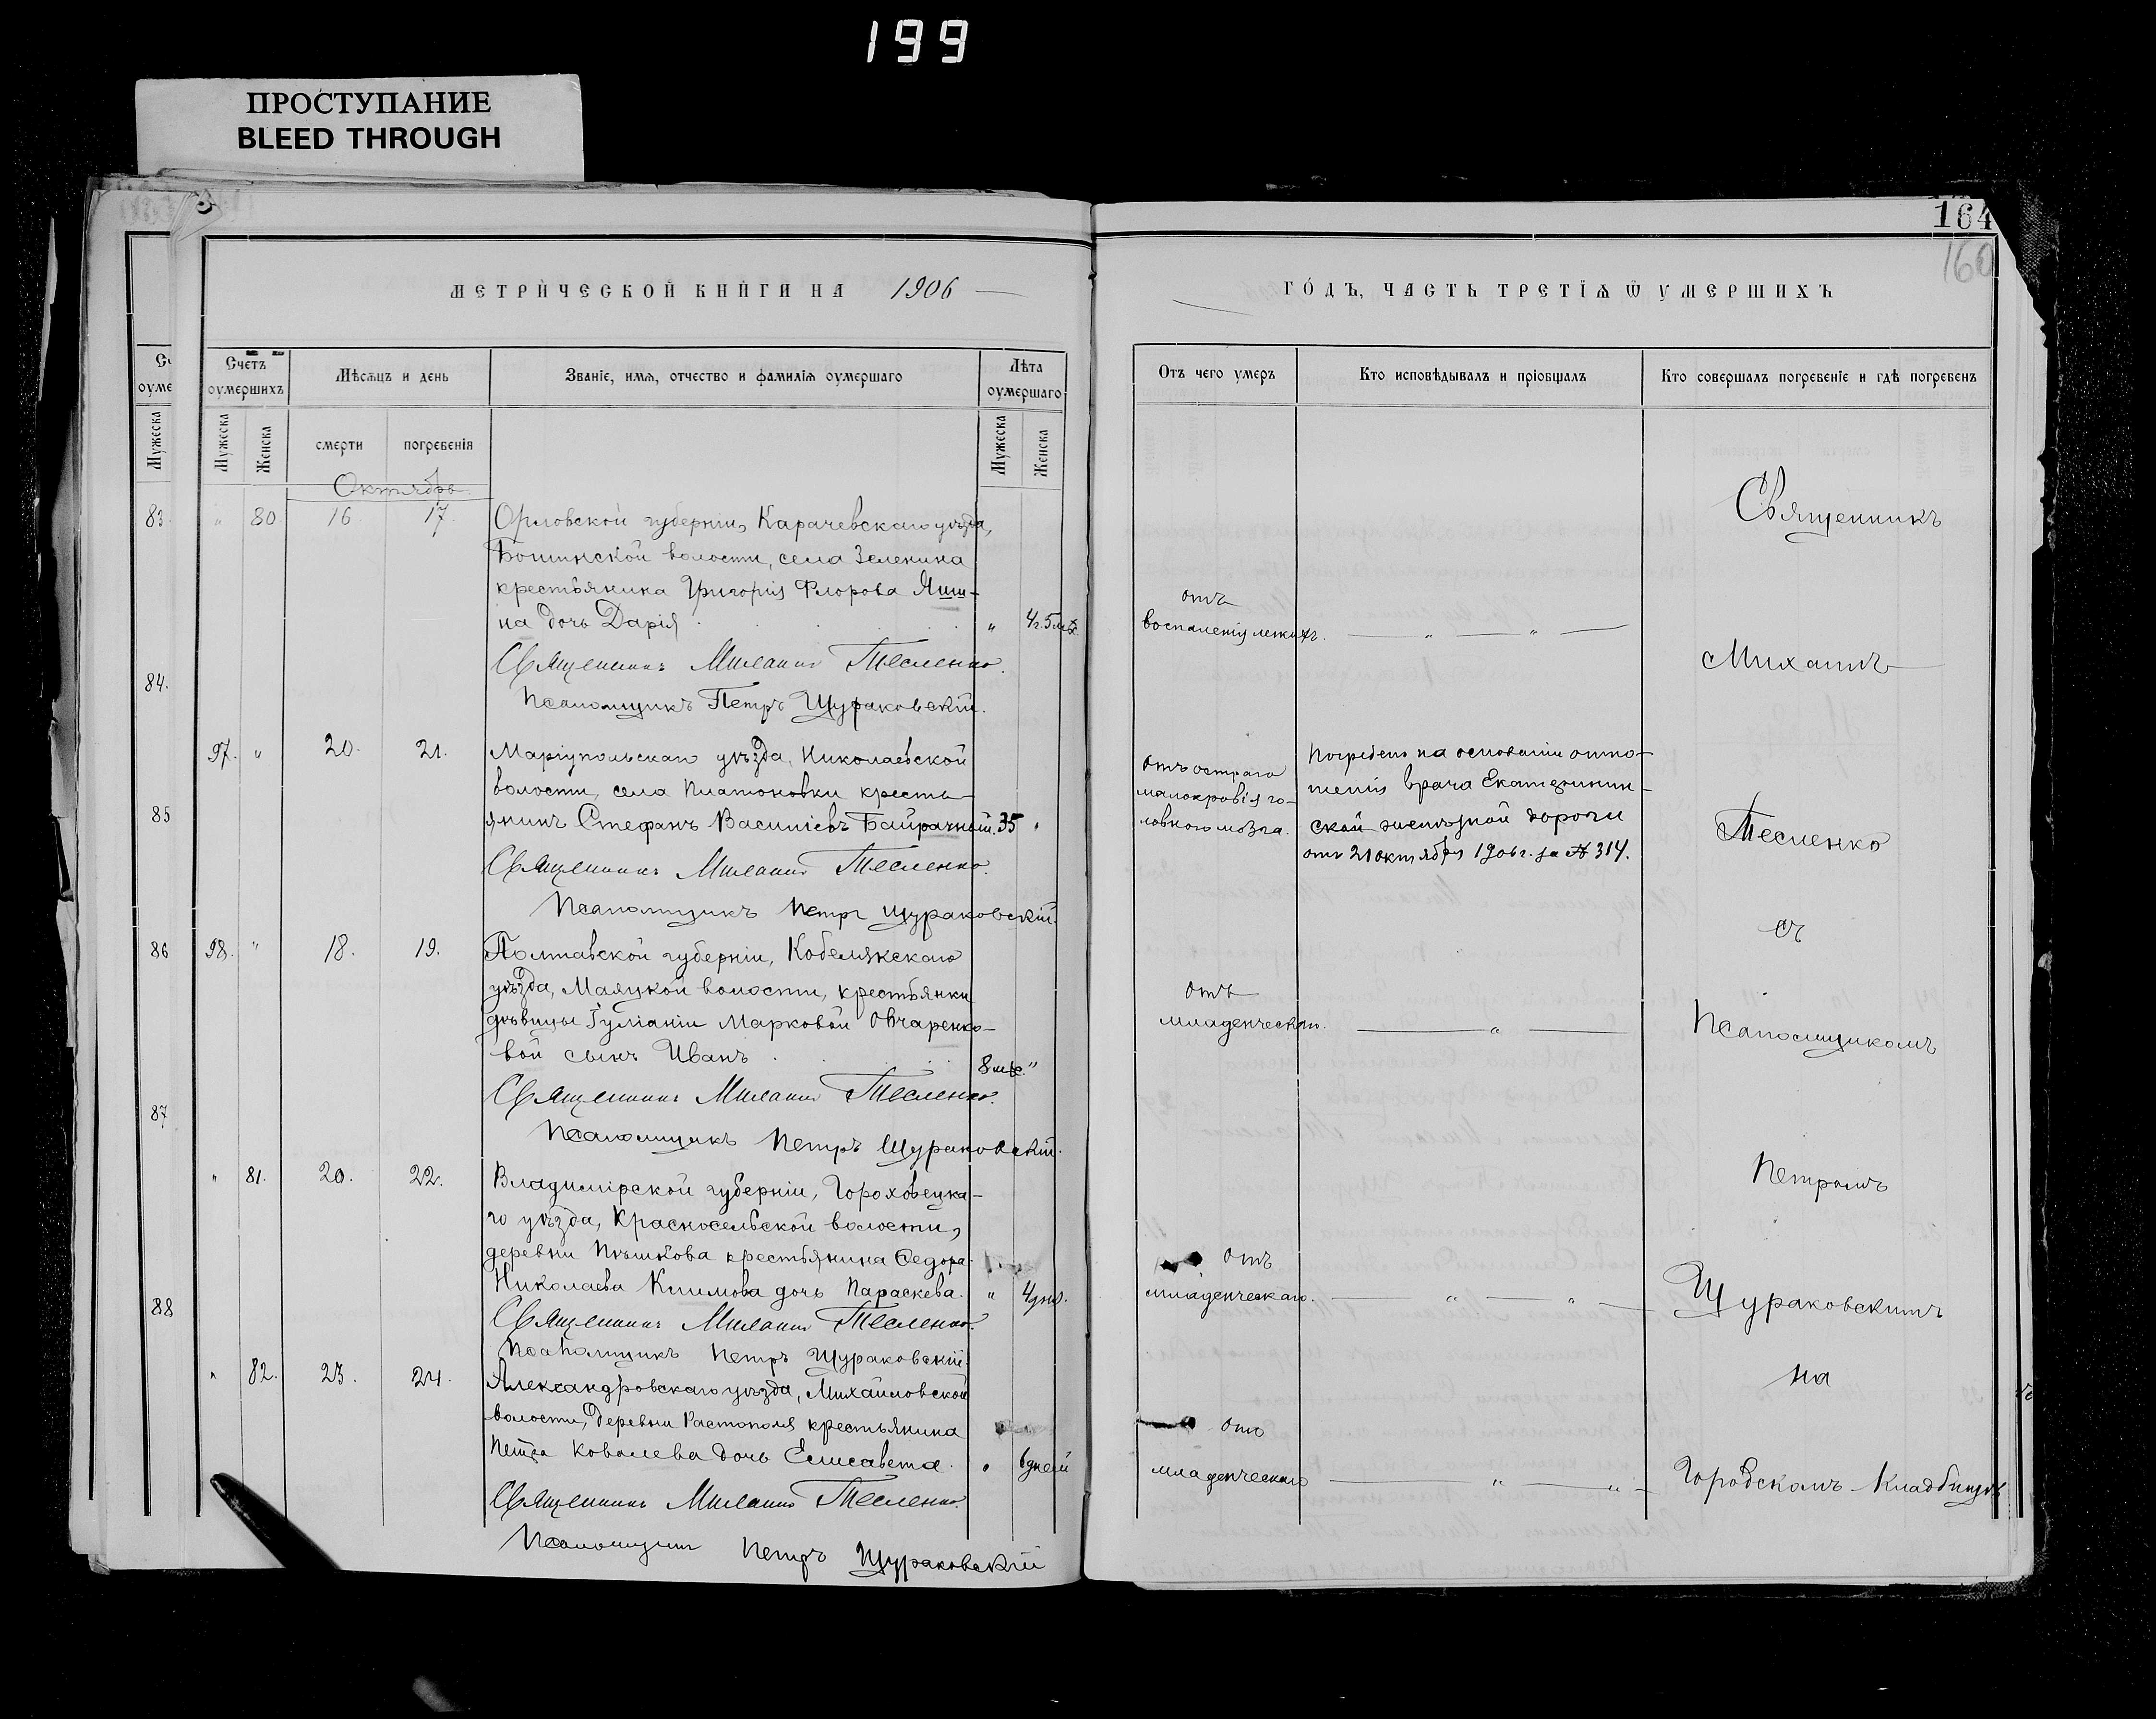 199
ПРОСТУПАНИЕ
BLEED THROUGH
164
160
МЕТРИЧЕСКОЙ КНИГИ НА 1906
ГОДЪ, ЧАСТЬ ТРЕТІѦ Ѿ УМЕРШИХЪ
Счетъ оумершихъ
Мѣсѧцъ и день
Званіе, имѧ, отчество и фамиліѧ оумершаго
Лѣта оумершаго
Отъ чего умеръ
Кто исповѣдывалъ и пріобщалъ
Кто совершалъ погребеніе и гдѣ погребенъ
Мужеска
Мужеска
Женска
смерти
погребеніѧ
Мужеска
Женска
Октябрь
83
" 80 16 17
Орловской губерніи, Карачевскаго уѣзда,
волости, села Зеленина
крестьянина Григорія Флорова Яши-
на дочь Дарія " 4г. 5мѣ.
отъ
воспаленія легкихъ. " "
Священникъ Тесленко.
84.
Псаломщикъ Петръ Щураковскій.
97. " 20. 21.
Маріупольскаго уѣзда, Николаевской
волости, села Платоновки кресть-
янинъ Стефанъ Василіевъ Байрачный. 35 "
отъ остраго
малокровія го-
ловного мозга.
Погребенъ на основаніи отно-
шенія врача Екатеринин-
ской желѣзной дороги
отъ 21 октября 1906 г. за № 314.
85
Священникъ Тесленко.
Псаломщикъ Петръ Щураковскій.
86
98. " 18. 19.
Полтавской губерніи, Кобелякскаго
уѣзда, Маяцкой волости, крестьянки
дѣвицы Іуліаніи Марковой Овчаренко-
вой сынъ Иванъ 8 мѣ. "
отъ
младенческой. "
Священникъ Тесленко.
87
Псаломщикъ Петръ Щураковскій.
" 81. 20. 22.
Владимірской губерніи, Гороховецка-
го уѣзда, Красносельской волости,
деревни Пѣшкова крестьянина Ѳедора
Николаева Климова дочь Параскева. " 4 дн.
отъ
младенческаго. " "
88
Священникъ Тесленко.
Псаломщикъ Петръ Щураковскій.
" 82. 23. 24.
Александровскаго уѣзда, Михайловской
волости, деревни Растополя крестьянина
Петра Ковалева дочь Елисавета. " 6 дней
отъ
младенческаго " "
Священникъ Тесленко.
Псаломщикъ Петръ Щураковскій
Священникъ
Михаилъ
Тесленко
съ
Псаломщикомъ
Петромъ
Щураковскимъ
на
Городскомъ Кладбищѣ